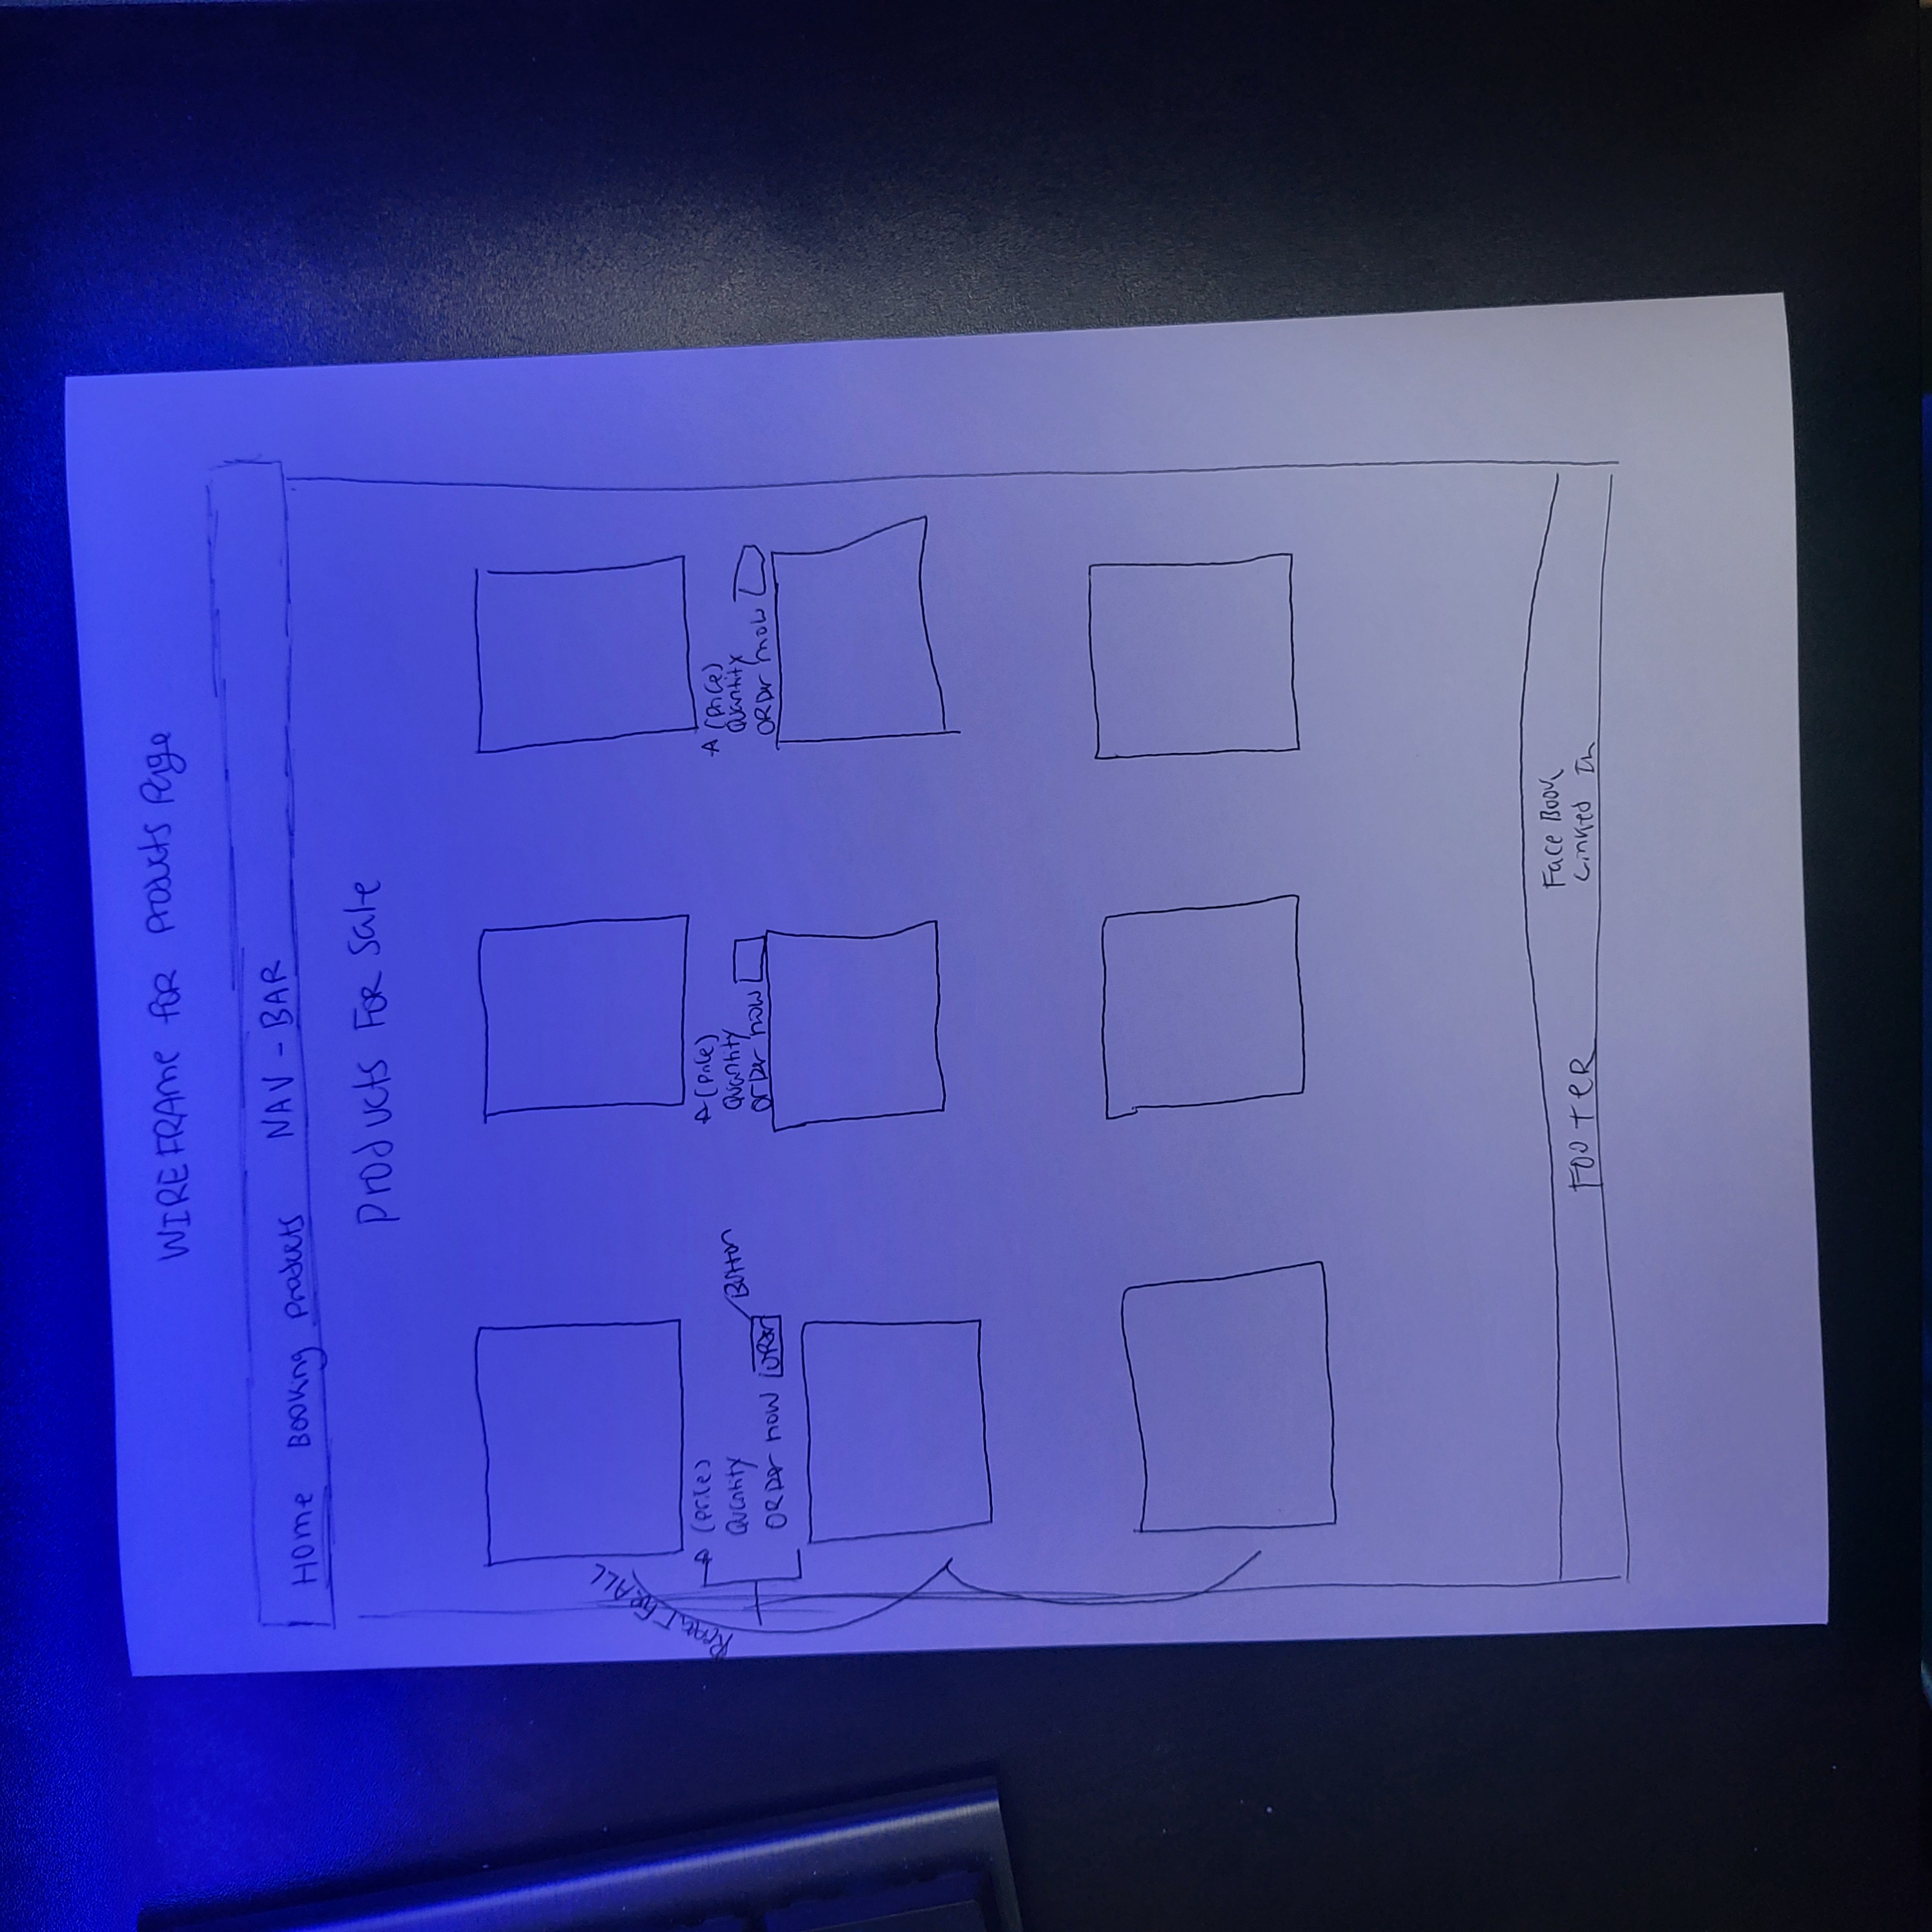 WIREFRAMe FOR Products Page
Home Booking Products NAV - BAR
Products FOR Sale
REPEAT FOR ALL
(Price)
Quantity
ORDer now ORDER
Button
A (Price)
Quantity
OrDer now
A (Price)
Quantity
ORDer now
FOOTeR
Face Book
Linked In